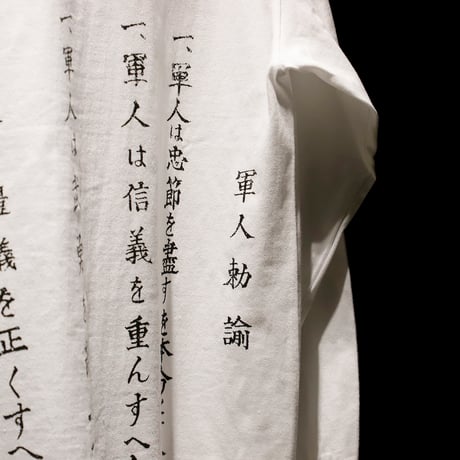 軍人勅諭
一、軍人は忠節を盡すを本分
一、軍人は信義を重んすへ
一、軍人は
義を正くすへ